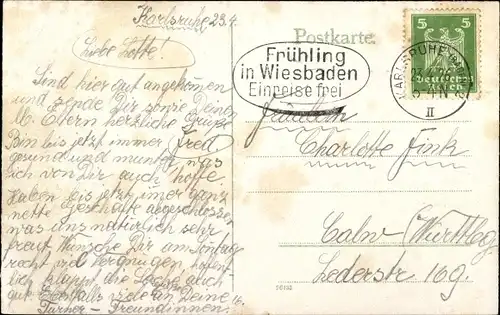 Karlsruhe 23.4.
Liebe Lotte!
Sind hier gut angekommen
und sende Dir sowie Deinen
lb. Eltern herzliche Grüße
Fred
Bin bis jetzt immer
gesund und munter was
ich von Dir auch hoffe.
Haben bis jetzt immer ganz
nette Geschäfte abgeschlossen
was uns natürlich sehr
freut. Wünsche Dir am Sonntag
recht viel Vergnügen, hoffent-
lich klappt die Sache auch
gut. Ebenfalls viele Grüße an Deine lb.
Turner-Freundinnen.
Postkarte
Frühling
in Wiesbaden
Einreise frei
5 5
Deutsches
Reich
KARLSRUHE (BADEN)
II
Fräulein
Charlotte Fink
Calw (Württbg.
Lederstr 169.